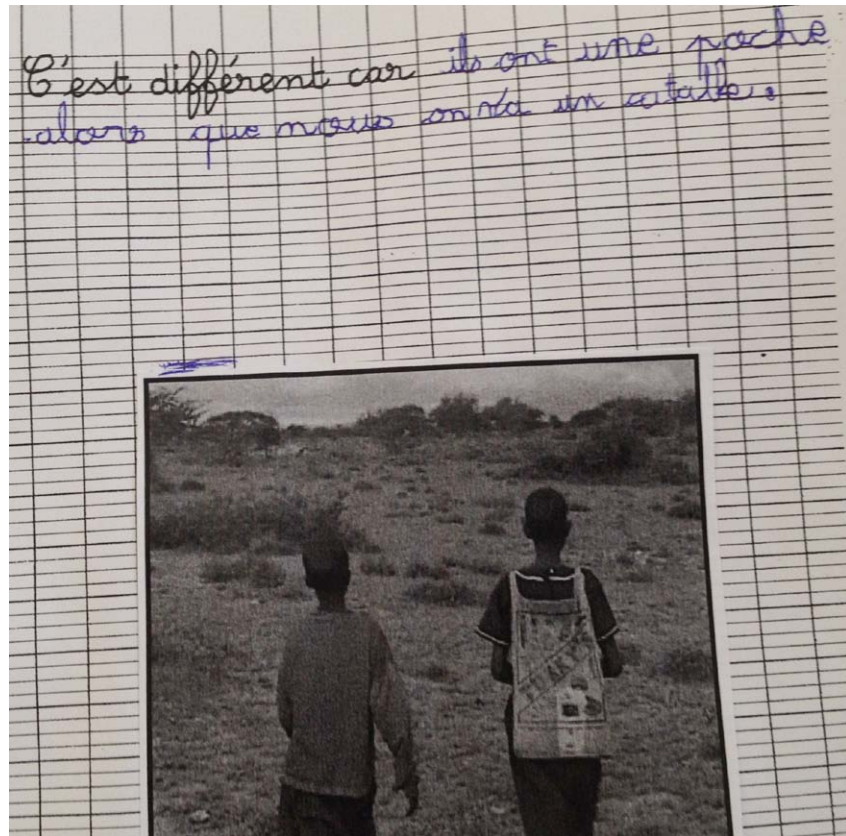 C'est différent car ils ont une poche
alors que nous on n'a un catalle.